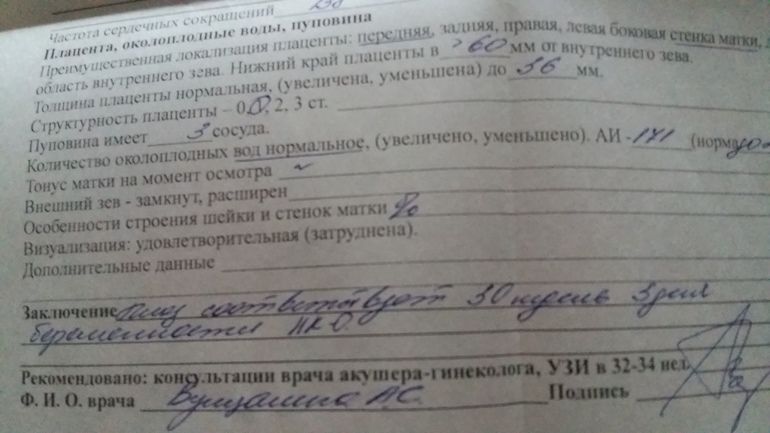 Частота сердечных сокращений
Плацента, околоплодные воды, пуповина
Преимущественная локализация плаценты: передняя, задняя, правая, левая боковая стенка матки,
область внутреннего зева. Нижний край плаценты в > 60 мм от внутреннего зева.
Толщина плаценты нормальная, (увеличена, уменьшена) до 36 мм.
Структурность плаценты – 0, 1, 2, 3 ст.
Пуповина имеет 3 сосуда.
Количество околоплодных вод нормальное, (увеличено, уменьшено). АИ - 171 (норма
Тонус матки на момент осмотра
Внешний зев - замкнут, расширен
Особенности строения шейки и стенок матки
Визуализация: удовлетворительная (затруднена).
Дополнительные данные
Заключение соответствует 30 недель 3 дня
беременности
Рекомендовано: консультации врача акушера-гинеколога, УЗИ в 32-34 нед.
Ф. И. О. врача Подпись